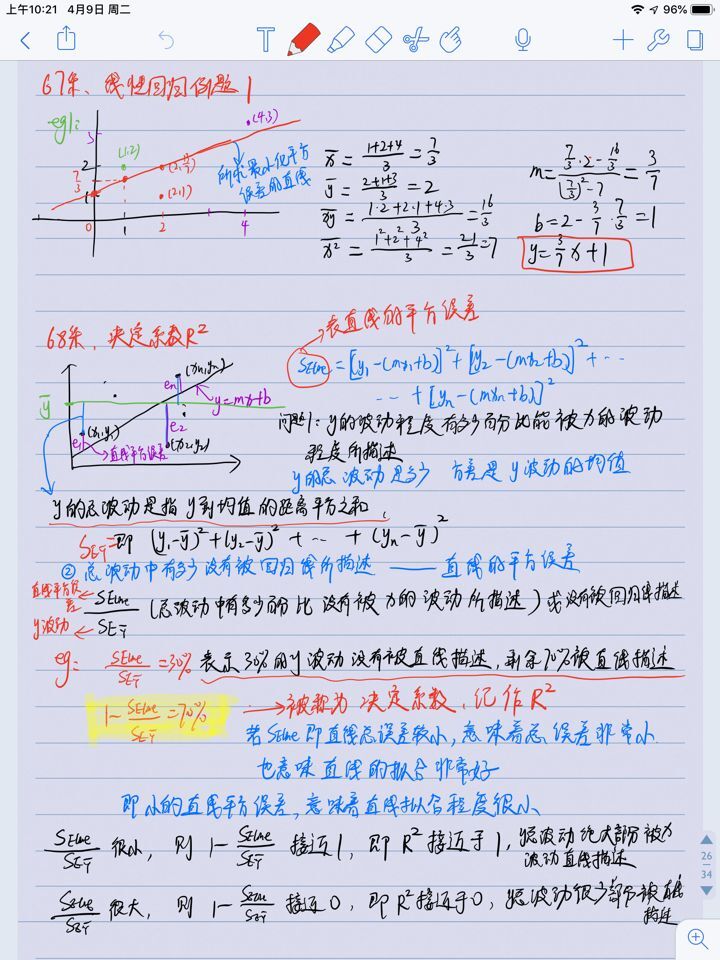 上午10:21 4月9日 周二
96%
T
67集、线性回归例题1
eg1:
3
2
7/3
1
0
1
2
4
(1,2)
(2,1)
(4,3)
所求最小化平方
误差的直线
x̄ = (1+2+4)/3 = 7/3
ȳ = (2+1+3)/3 = 2
x̄ȳ = (1·2+2·1+4·3)/3 = 16/3
x̄² = (1²+2²+4²)/3 = 21/3 = 7
m = (7/3·2 - 16/3)/((7/3)² - 7) = 3/7
b = 2 - 3/7·7/3 = 1
y = 3/7 x + 1
68集、决定系数R²
表直线的平方误差
SEline = [y1-(mx1+b)]² + [y2-(mx2+b)]² + ···
··· + [yn-(mxn+b)]²
ȳ
(xn,yn)
en
y=mx+b
(x1,y1)
e1
e2
(x2,y2)
直线平方误差
问题1: y的波动程度有多少百分比能被x的波动
程度所描述
y的总波动是多少 方差是y波动的均值
y的总波动是指y到均值的距离平方之和,
SEȳ = 即 (y1-ȳ)² + (y2-ȳ)² + ··· + (yn-ȳ)²
② 总波动中有多少没有被回归线所描述 —— 直线的平方误差
直线平方误差
y波动
SEline/SEȳ (总波动中有多少百分比没有被x的波动所描述) 或没有被回归线描述
eg: SEline/SEȳ = 30% 表示30%的y波动没有被直线描述,剩余70%被直线描述
1 - SEline/SEȳ = 70% → 被称为决定系数,记作R²
若SEline即直线总误差较小,意味着总误差非常小
也意味直线的拟合非常好
即小的直线平方误差,意味着直线拟合程度很小
SEline/SEȳ 很小, 则 1 - SEline/SEȳ 接近1, 即R²接近于1, 总波动绝大部分被x
波动直线描述
SEline/SEȳ 很大, 则 1 - SEline/SEȳ 接近0, 即R²接近于0, 总波动很少部分被直线
描述
26
34